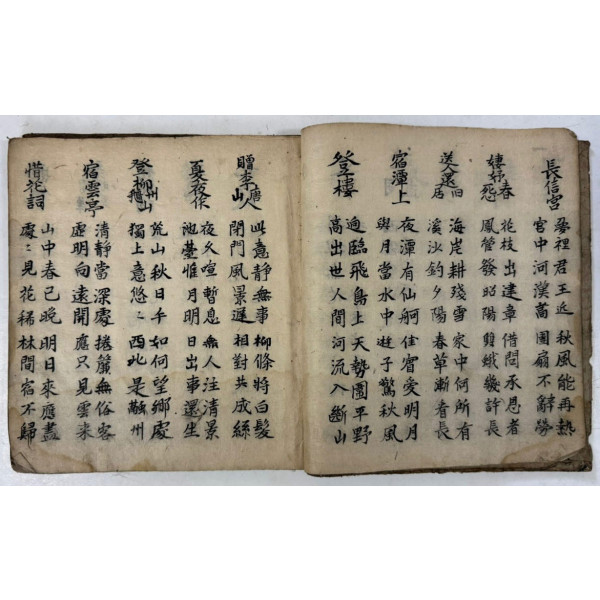 長信宮
夢裡君王近秋風能再熱
宮中河漢高團扇不辭勞
婕妤春怨
花枝出建章借問承恩者
鳳管發昭陽蛾幾許長
送人還居
海岸耕殘雪家中何所有
溪沙釣夕陽春草漸看長
宿潭上
夜潭有仙舸佳賓愛明月
與月當水中遊子驚秋風
登樓
迥臨飛鳥上天勢圍平野
高出世人間河流入斷山
贈李唐山人
此意靜無事柳條將白髮
閉門風景遲相對共成絲
夏夜作
夜久喧暫息無人注清景
池臺惟月明日出事還生
登柳州山
荒山秋日午如何望鄉處
獨上意悠〻西北是融州
宿雲亭
清靜當深處捲簾無俗客
虛明向遠開應只見雲來
惜花詞
山中春已晚明日來應盡
處〻見花稀林間宿不歸